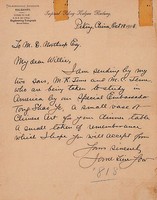 Imperial Peking Kalgan Railway.
Peking, China, Oct 18 1908
To M. B. Northrop Esq.
My dear Willie,
I am sending by
my two sons, Mr. K. Jeme and M. C. Jeme
who are being taken to study in
America by our Special Ambassador
Tong Shao Yi, a small vase of
Chinese art for your Chinese table
a small token of remembrance
which I hope you will accept from
Yours Sincerely
Jeme Tien Yow